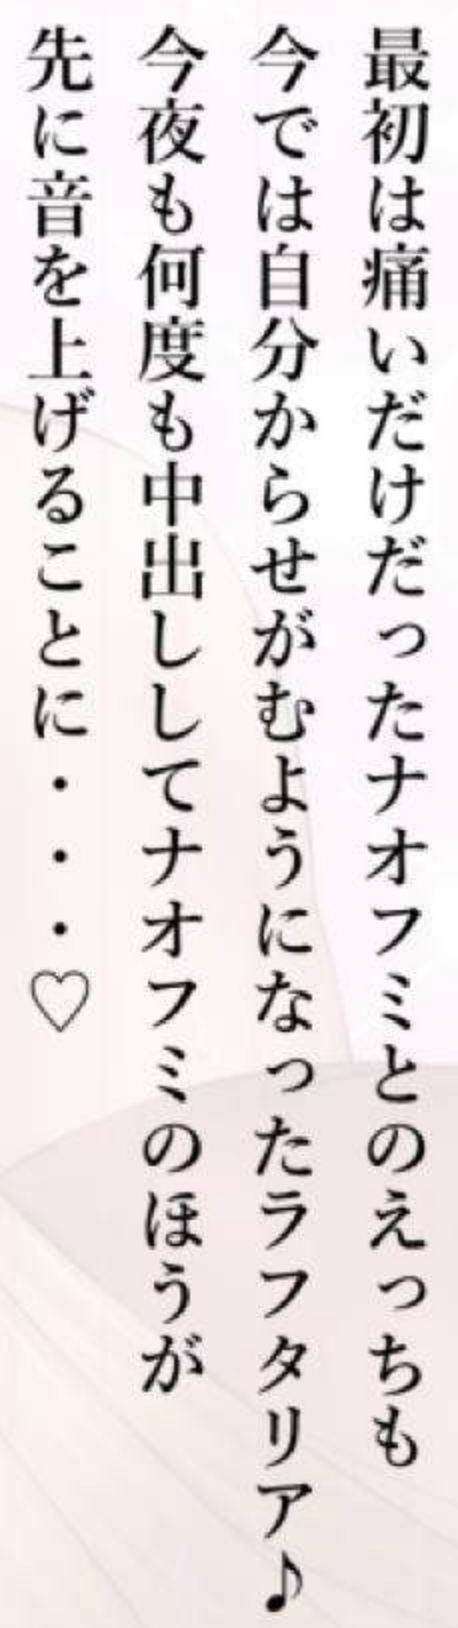 最初は痛いだけだったナオフミとのえっちも
今では自分からせがむようになったラフタリア♪
今夜も何度も中出ししてナオフミのほうが
先に音を上げることに・・・♡